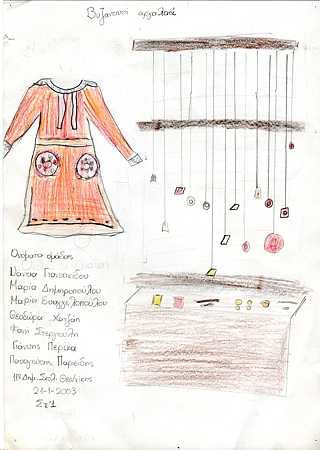 Βυζαντινοί αργαλειοί
Ονόματα ομάδας
Μαρία Δημηροπούλου
Μαρία Ευαγγελοπούλου
Θεοδώρα Χατζάη
Φανή Στεργιούλη
Γιάννης Περίκα
Παναγιώτης Παρισίδης
Δημ. Σχολ. Θεσ/νίκης
21-1-2003
Στ'1